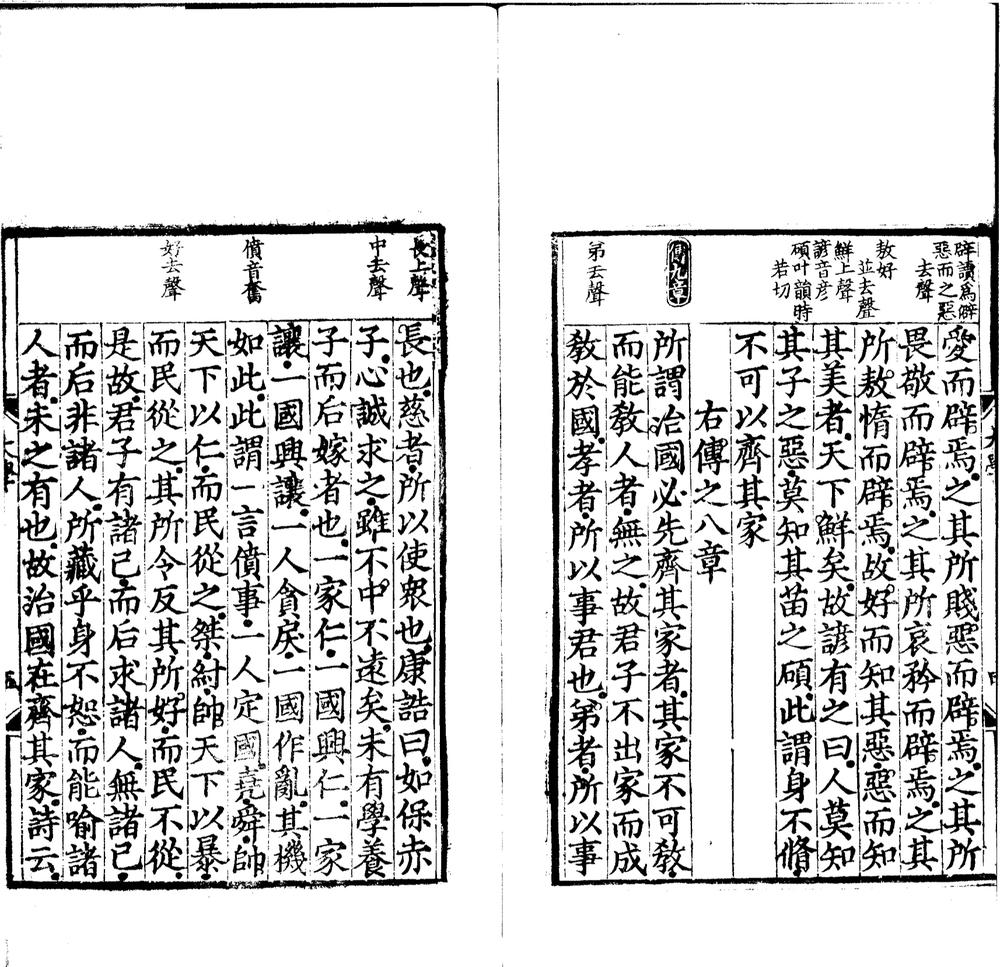 辟讀爲辟
惡而之惡
去聲
敖好
並去聲
鮮上聲
諺音彦
碩叶韻時
若切
愛而辟焉之其所賤惡而辟焉之其所
畏敬而辟焉之其所哀矜而辟焉之其
所敖惰而辟焉故好而知其惡惡而知
其美者天下鮮矣故諺有之曰人莫知
其子之惡莫知其苗之碩此謂身不脩
不可以齊其家
右傳之八章
傳九章
弟去聲
所謂治國必先齊其家者其家不可敎
而能敎人者無之故君子不出家而成
敎於國孝者所以事君也弟者所以事
長上聲
中去聲
僨音奮
好去聲
長也慈者所以使衆也康誥曰如保赤
子心誠求之雖不中不遠矣未有學養
子而后嫁者也一家仁一國興仁一家
讓一國興讓一人貪戾一國作亂其機
如此此謂一言僨事一人定國堯舜帥
天下以仁而民從之桀紂帥天下以暴
而民從之其所令反其所好而民不從
是故君子有諸己而后求諸人無諸己
而后非諸人所藏乎身不恕而能喻諸
人者未之有也故治國在齊其家詩云